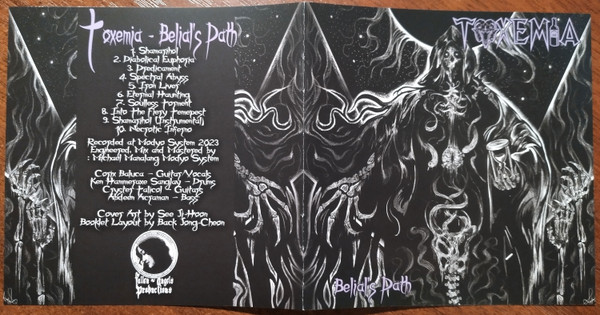 Toxemia - Belial's Path
1. Shamanhol
2. Diabolical Euphoria
3. Predicament
4. Spectral Abyss
5. Iron Liver
6. Eternal Haunting
7. Soulless Torment
8. Into the Fiery
9. Shamanhol (Instrumental)
10. Necrotic Inferno
Recorded at Modyo System 2023
Engineered, Mix and Mastered by
: Michael Manalang Modyo System
Corix Baluca - Guitar/Vocals
Ken Hammeraxe Sanglay - Drums
Crysler Falicol - Guitars
Abdeen - Bass
Cover Art by See Ji-Hoon
Booklet Layout by Back Jong-Cheon
Angels
Productions
TOXEMIA
Belial's Path